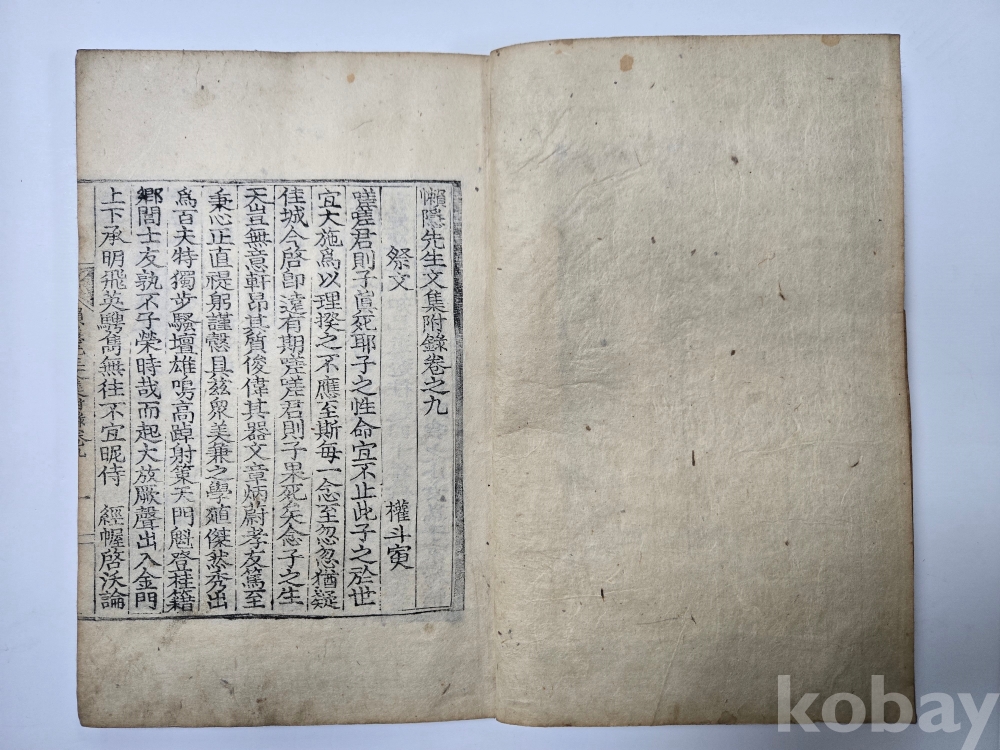 懶隱先生文集附錄卷之九
祭文 權斗寅
嗟嗟君則子眞死耶子之性命宜不止此子之於世
宜大施爲以理揆之不應至斯每一念至忽忽猶疑
佳城今啓卽遠有期嗟嗟君則子果死矣念子之生
天豈無意軒昂其質俊偉其器文章炳蔚孝友篤至
秉心正直禔躬謹慤具玆衆美兼之學殖傑然秀出
爲百夫特獨步騷壇雄鳴高踔射策天門魁登桂籍
鄕閭士友孰不子榮時哉而起大放厥聲出入金門
上下承明飛英騁雋無往不宜昵侍 經幄啓沃論
kobay